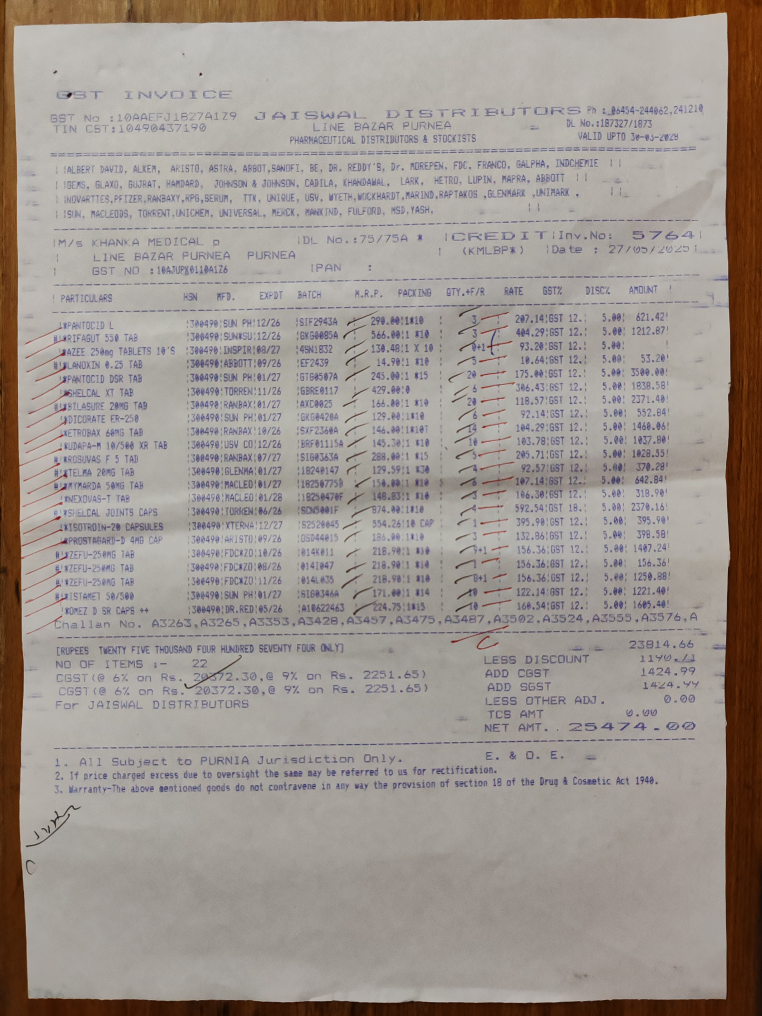 GST INVOICE
GST No :10AAEFJ1827A1Z9 JAISWAL DISTRIBUTORS Ph :.06454-244062,241210
TIN CST:10490437190 LINE BAZAR PURNEA DL No.:187327/1873
PHARMACEUTICAL DISTRIBUTORS & STOCKISTS VALID UPTO 30-03-2029
!ALBERT DAVID, ALKEM, ARISTO, ASTRA, ABBOT,SANOFI, BE, DR. REDDY'S, Dr. MOREPEN, FDC, FRANCO, GALPHA, INDCHEMIE !!
!GEMS, GLAXO, GUJRAT, HAMDARD, JOHNSON & JOHNSON, CADILA, KHANDAWAL, LARK, HETRO, LUPIN, MAPRA, ABBOTT !!
!NOVARTTES,PFIZER,RANBAXY,RPG,SERUM, TTK, UNIQUE, USV, WYETH,WOCKHARDT,MARIND,RAPTAKOS ,GLENMARK ,UNIMARK .
!SUN, MACLEODS, TORRENT,UNICHEM, UNIVERSAL, MERCK, MANKIND, FULFORD, MSD,YASH, !!
!M/s KHANKA MEDICAL p !DL No.:75/75A * !CREDIT!Inv.No: 5764!
LINE BAZAR PURNEA PURNEA ! (KMLBP*) !Date : 27/05/2025!
GST NO :10AJUPK0110A1Z6 !PAN :
! PARTICULARS HSN MFD. EXPDT BATCH M.R.P. PACKING QTY.+F/R RATE GST% DISC% AMOUNT !
!*PANTOCID L !300490!SUN PH!12/26 !SIF2943A 290.00!1*10 3 207.14!GST 12.! 5.00! 621.42!
*RIFAGUT 550 TAB !300490!SUN*SU!12/26 !GKG0085A 566.00!1 *10 3 404.29!GST 12.! 5.00! 1212.87!
*AZEE 250mg TABLETS 10'S !300490!INSPIR!08/27 !4SN1832 130.48!1 X 10 0+1 93.20!GST 12.! 5.00!
*LANOXIN 0.25 TAB !300490!ABBOTT!09/26 !EF2439 14.90!1 *10 5 10.64!GST 12.! 5.00! 53.20!
!*PANTOCID DSR TAB !300490!SUN PH!01/27 !GTG0507A 245.00!1 *15 20 175.00!GST 12.! 5.00! 3500.00!
*SHELCAL XT TAB !300490!TORREN!11/26 !GBRE0117 429.00!0 6 306.43!GST 12.! 5.00! 1838.58!
*BILASURE 20MG TAB !300490!RANBAX!01/27 !AXC0025 166.00!1 *10 20 118.57!GST 12.! 5.00! 2371.40!
*DICORATE ER-250 !300490!SUN PH!01/27 !GKG0420A 129.00!1*10 6 92.14!GST 12.! 5.00! 552.84!
*ETROBAX 60MG TAD !300490!RANBAX!10/26 !SXF2360A 146.00!1*10! 14 104.29!GST 12.! 5.00! 1460.06!
*UDAPA-M 10/500 XR TAB !300490!USV CO!12/26 !BRF01115A 145.30!1 *10 10 103.78!GST 12.! 5.00! 1037.80!
*ROSUVAS F 5 TAD !300490!RANBAX!07/27 !SIG0363A 288.00!1 *15 5 205.71!GST 12.! 5.00! 1028.55!
*TELMA 20MG TAB !300490!GLENMA!01/27 !18240147 129.59!1 *30 4 92.57!GST 12.! 5.00! 370.28!
*MYMARDA 50MG TAB !300490!MACLEO!01/27 !18250775B 150.00!1 *10 6 107.14!GST 12.! 5.00! 642.84!
!*NEXOVAS-T TAB !300490!MACLEO!01/28 !18250470F 148.83!1 *10 3 106.30!GST 12.! 5.00! 318.90!
*SHELCAL JOINTS CAPS !300490!TORREN!06/26 874.00!1*10 4 592.54!GST 18.! 5.00! 2370.16!
*ISOTROIN-20 CAPSULES !300490!XTERNA!12/27 !S2520045 554.26!10 CAP 1 395.90!GST 12.! 5.00! 395.90!
*PROSTAGARD-D 4MG CAP !300490!ARISTO!09/26 !DSD44015 186.00!1*10 3 132.86!GST 12.! 5.00! 398.58!
*ZEFU-250MG TAB !300490!FDC*ZO!10/26 !014K011 218.90!1 *10 9+1 156.36!GST 12.! 5.00! 1407.24!
!*ZEFU-250MG TAB !300490!FDC*ZO!08/26 !014I047 218.90!1 *10 1 156.36!GST 12.! 5.00! 156.36!
*ZEFU-250MG TAB !300490!FDC*ZO!11/26 !014L035 218.90!1 *10 8+1 156.36!GST 12.! 5.00! 1250.88!
*ISTAMET 50/500 !300490!SUN PH!01/27 !SIG0346A 171.00!1 *14 10 122.14!GST 12.! 5.00! 1221.40!
*OMEZ D SR CAPS ++ !300490!DR.RED!05/26 !A10622463 224.75!1*15 10 160.54!GST 12.! 5.00! 1605.40!
Challan No. A3263,A3265,A3353,A3428,A3457,A3475,A3487,A3502,A3524,A3555,A3576,A
23814.66
[RUPEES TWENTY FIVE THOUSAND FOUR HUNDRED SEVENTY FOUR ONLY] LESS DISCOUNT 1190.71
NO OF ITEMS :- 22 ADD CGST 1424.99
CGST(@ 6% on Rs. 20372.30,@ 9% on Rs. 2251.65) ADD SGST 1424.99
CGST(@ 6% on Rs. 20372.30,@ 9% on Rs. 2251.65) LESS OTHER ADJ. 0.00
For JAISWAL DISTRIBUTORS TCS AMT 0.00
NET AMT.. 25474.00
1. All Subject to PURNIA Jurisdiction Only. E. & O. E.
2. If price charged excess due to oversight the same may be referred to us for rectification.
3. Warranty-The above mentioned goods do not contravene in any way the provision of section 18 of the Drug & Cosmetic Act 1940.